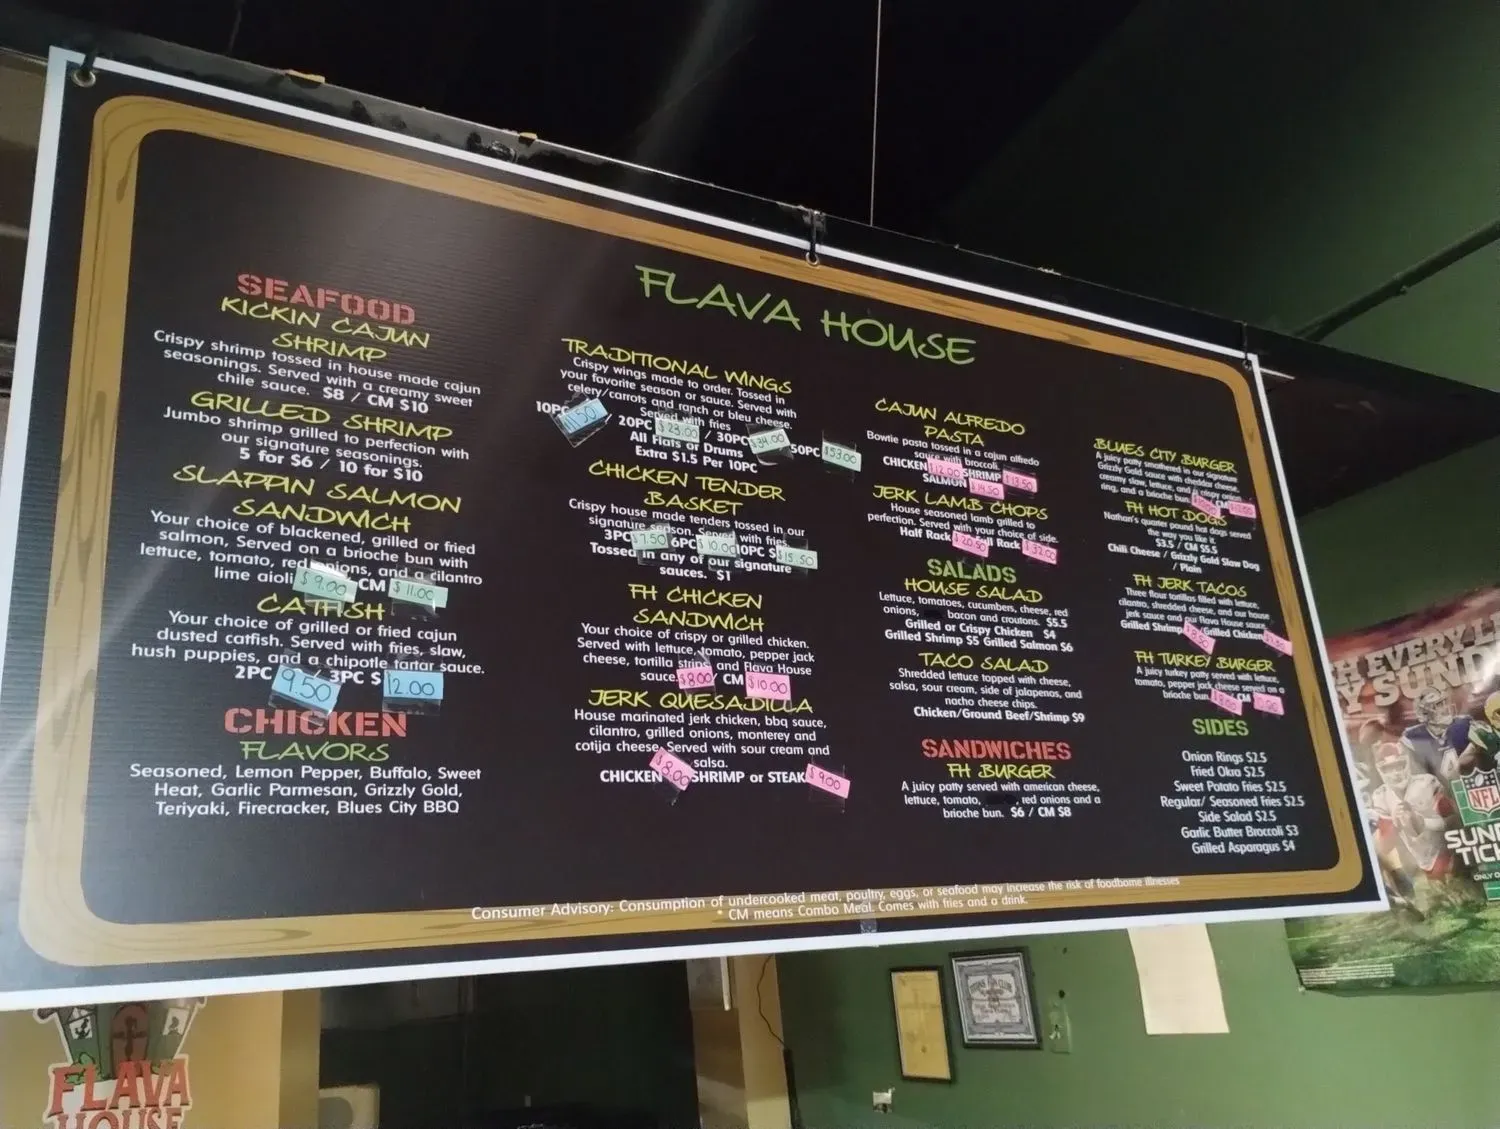 FLAVA HOUSE
SEAFOOD
KICKIN CAJUN
SHRIMP
Crispy shrimp tossed in house made cajun
seasonings. Served with a creamy sweet
chile sauce. $8 / CM $10
GRILLED SHRIMP
Jumbo shrimp grilled to perfection with
our signature seasonings.
5 for $6 / 10 for $10
SLAPPIN SALMON
SANDWICH
Your choice of blackened, grilled or fried
salmon, Served on a brioche bun with
lettuce, tomato, red onions, and a cilantro
lime aioli $9.00 CM $11.00
CATFISH
Your choice of grilled or fried cajun
dusted catfish. Served with fries, slaw,
hush puppies, and a chipotle tartar sauce.
2PC 9.50 / 3PC $ 12.00
CHICKEN
FLAVORS
Seasoned, Lemon Pepper, Buffalo, Sweet
Heat, Garlic Parmesan, Grizzly Gold,
Teriyaki, Firecracker, Blues City BBQ
TRADITIONAL WINGS
Crispy wings made to order. Tossed in
your favorite season or sauce. Served with
celery/carrots and ranch or bleu cheese.
Served with fries
10PC 11.50 20PC $23.00 / 30PC $34.00 50PC $53.00
All Flats or Drums
Extra $1.5 Per 10PC
CHICKEN TENDER
BASKET
Crispy house made tenders tossed in our
signature season. Served with fries
3PC $7.50 6PC $10.00 10PC $ $15.50
Tossed in any of our signature
sauces. $1
FH CHICKEN
SANDWICH
Your choice of crispy or grilled chicken.
Served with lettuce, tomato, pepper jack
cheese, tortilla strips, and Flava House
sauce. $8.00 / CM $10.00
JERK QUESADILLA
House marinated jerk chicken, bbq sauce,
cilantro, grilled onions, monterey and
cotija cheese. Served with sour cream and
salsa.
CHICKEN $8.00 SHRIMP or STEAK $9.00
CAJUN ALFREDO
PASTA
Bowtie pasta tossed in a cajun alfredo
sauce with broccoli.
CHICKEN $12.00 SHRIMP $13.50
SALMON $14.50
JERK LAMB CHOPS
House seasoned lamb grilled to
perfection. Served with your choice of side.
Half Rack $20.50 Full Rack $32.00
SALADS
HOUSE SALAD
Lettuce, tomatoes, cucumbers, cheese, red
onions, bacon and croutons. $5.5
Grilled or Crispy Chicken $4
Grilled Shrimp $5 Grilled Salmon $6
TACO SALAD
Shredded lettuce topped with cheese,
salsa, sour cream, side of jalapenos, and
nacho cheese chips.
Chicken/Ground Beef/Shrimp $9
SANDWICHES
FH BURGER
A juicy patty served with american cheese,
lettuce, tomato, red onions and a
brioche bun. $6 / CM $8
BLUES CITY BURGER
A juicy patty smothered in our signature
Grizzly Gold sauce with cheddar cheese,
creamy slaw, lettuce, and a crispy onion
ring, and a brioche bun. CM
FH HOT DOGS
Nathan's quarter pound hot dogs served
the way you like it.
$3.5 / CM $5.5
Chili Cheese / Grizzly Gold Slaw Dog
/ Plain
FH JERK TACOS
Three flour tortillas filled with lettuce,
cilantro, shredded cheese, and our house
jerk sauce and our Flava House sauce.
Grilled Shrimp $8.50 /Grilled Chicken
FH TURKEY BURGER
A juicy turkey patty served with lettuce,
tomato, pepper jack cheese served on a
brioche bun. CM
SIDES
Onion Rings $2.5
Fried Okra $2.5
Sweet Potato Fries $2.5
Regular/ Seasoned Fries $2.5
Side Salad $2.5
Garlic Butter Broccoli $3
Grilled Asparagus $4
Consumer Advisory: Consumption of undercooked meat, poultry, eggs, or seafood may increase the risk of foodborne illnesses
* CM means Combo Meal. Comes with fries and a drink.
FLAVA
HOUSE
NFL